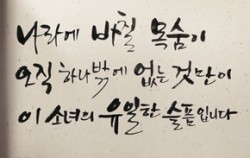 나라에 바칠 목숨이
오직 하나밖에 없는 것만이
이 소녀의 유일한 슬픔입니다